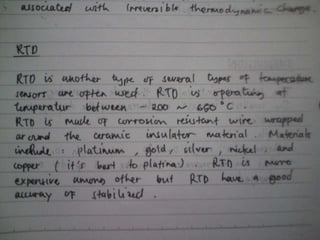 associated with irreversible thermodynamic change.
RTD
RTD is another type of several types of temperature
sensors are often used. RTD is operating at
temperatur between - 200 ~ 650 °C.
RTD is made of corrosion resistant wire wrapped
around the ceramic insulator material. Materials
include : platinum, gold, silver, nickel and
copper ( it's best to platina.) RTD is more
expensive among other but RTD have a good
accuray of stabilized.